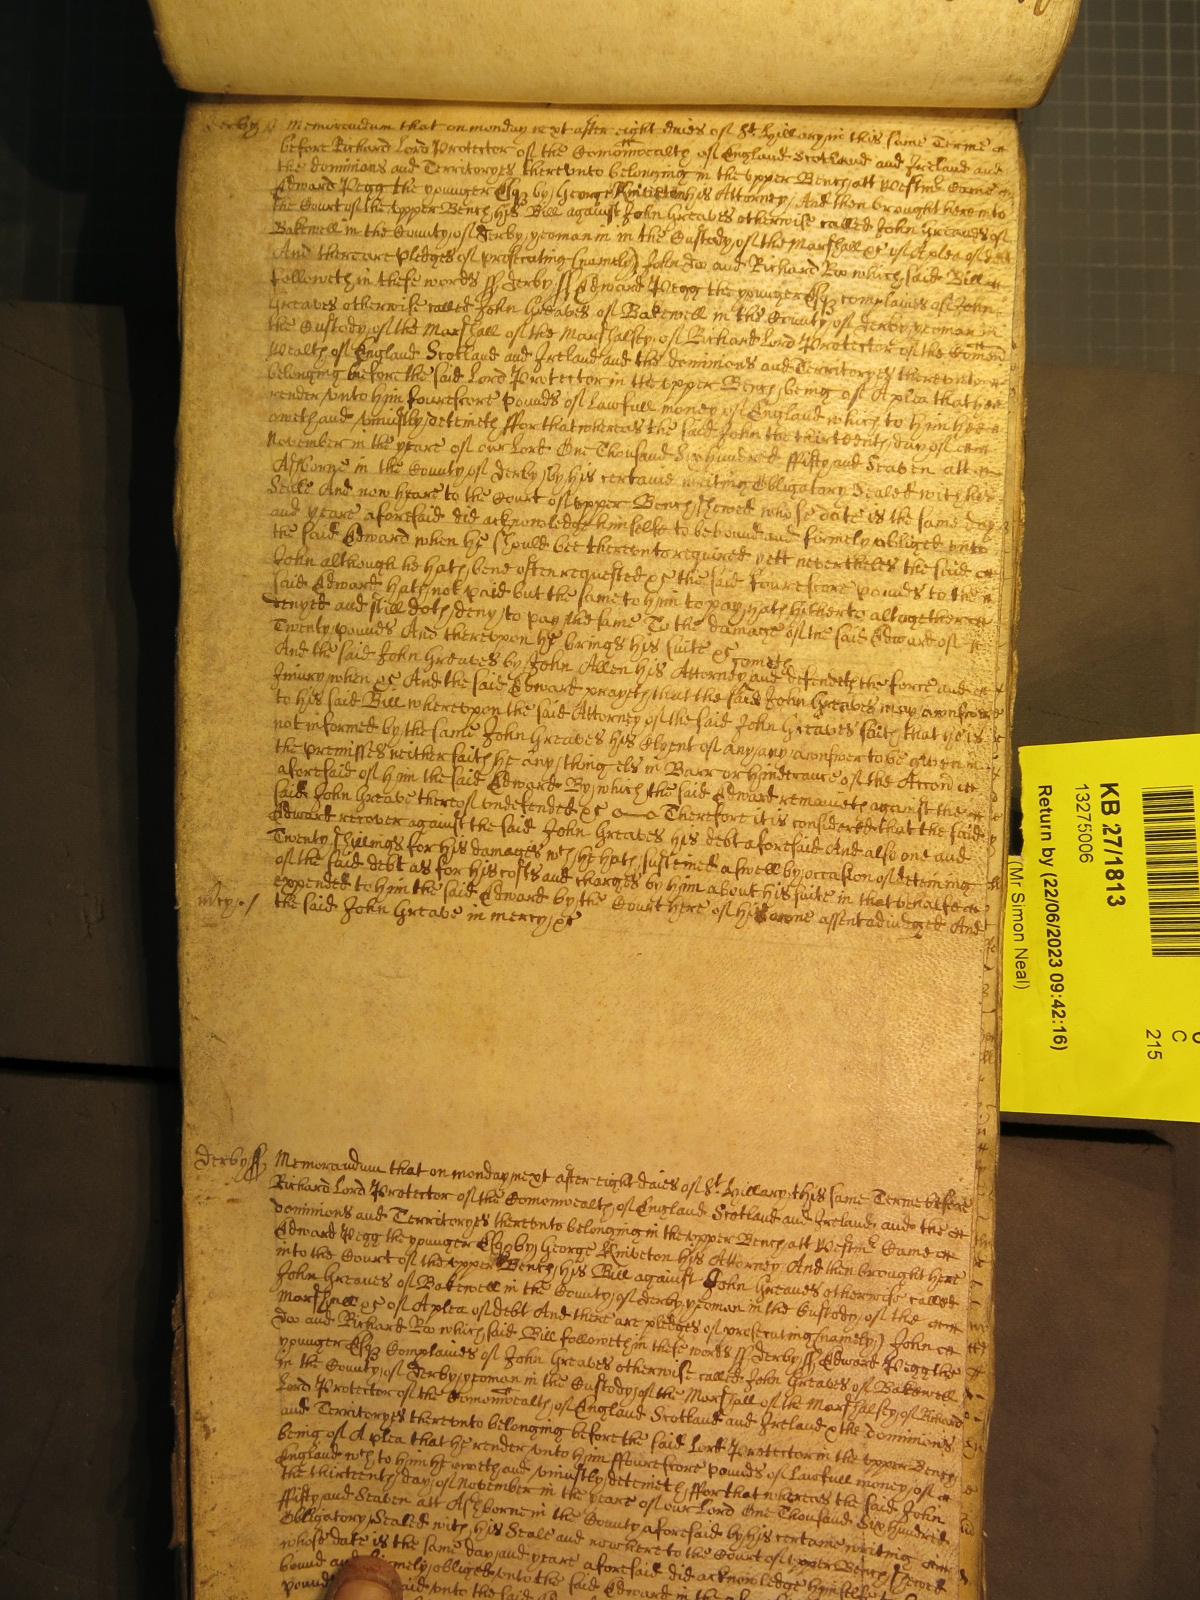 Derby ss Memorandum that on monday next after eight daies of St. Hillary in this same Terme
before Richard Lord Protector of the Comonwealth of England Scotland and Ireland and
the dominions and Territoryes thereunto belonging in the upper Bench att Westmr Came
Edward Pegg the younger Esq by George Kniveton his Attorney And then brought here into
the Court of the upper Bench his Bill against John Greaves otherwise called John Greaves of
Bakewell in the County of Derby yeoman in in the Custody of the Marshall &c of A plea of debt
And there are pledges of prosecuting (namely) John Doo and Richard Roo which said Bill
followeth in these words ss Derby ss Edward Pegg the younger Esq complaines of John
Greaves otherwise called John Greaves of Bakewell in the County of Derby yeoman in
the Custody of the Marshall of the Marshalsey of Richard Lord Protector of the Comon
wealth of England Scotland and Ireland and the dominions and Territoryes thereunto
belonging before the said Lord Protector in the upper Bench being of A plea that hee
render unto him fourescore pounds of lawfull money of England which to him hee
oweth and uniustly deteineth ffor that whereas the said John the thirteenth day of
November in the yeare of our Lord One Thousand Six hundred ffifty and Seaven att
Ashborne in the County of Derby by his certaine writing Obligatory Sealed with his
Seale And now heare to the Court of upper Bench shewed whose date is the same day
and yeare aforesaid did acknowledge himselfe to be bound and firmely obliged unto
the said Edward when he should bee thereunto required yett nevertheles the said
John although he hath bene often requested &c the said fourescore pounds to the
said Edward hath not paid but the same to him to pay hath hitherto altogether
denyed and still doth deny to pay the same To the damage of the said Edward of
Twenty pounds And thereupon he brings his suite &c
And the said John Greaves by John Allen his Attorney cometh and defendeth the force and
Iniury when &c And the said Edward prayeth that the said John Greaves may answere
to his said Bill whereupon the said Attorney of the said John Greaves saith that he is
not informed by the same John Greaves his Clyent of any any answer to be given in
the premisses neither saith he any thing els in Barr or hinderance of the Accon
aforesaid of him the said Edward By which the said Edward remaineth against the
said John Greave thereof undefended &c Therefore it is considered that the said
Edward recover against the said John Greaves his debt aforesaid And also one and
Twenty shillings for his damages wch he hath susteined aswell by occasion of deteining
of the said debt as for his costs and charges by him about his suite in that behalfe
expended to him the said Edward by the Court here of his owne assent adiudged And
mercy / the said John Greave in mercy &c
Derby ss Memorandum that on monday next after eight daies of St. Hillary this same Terme before
Richard Lord Protector of the Comonwealth of England Scotland and Ireland and the
dominions and Territoryes thereunto belonging in the upper Bench att Westmr Came
Edward Pegg the younger Esq by George Kniveton his Attorney And then brought here
into the Court of the upper Bench his Bill against John Greaves otherwise called
John Greaves of Bakewell in the County of Derby yeoman in the Custody of the
Marshall &c of A plea of debt And there are pledges of prosecuting (namely) John
Doo and Richard Roo which said Bill followeth in these words ss Derby ss Edward Pegg the
younger Esq Complaines of John Greaves otherwise called John Greaves of Bakewell
in the County of Derby yeoman in the Custody of the Marshall of the Marshalsey of Richard
Lord Protector of the Comonwealth of England Scotland and Ireland & the dominions
and Territoryes thereunto belonging before the said Lord Protector in the upper Bench
being of A plea that he render unto him ffourescore pounds of lawfull money of
England wch to him he oweth and uniustly deteineth ffor that whereas the said John
the thirteenth day of November in the yeare of our Lord One Thousand Six hundred
ffifty and Seaven att Ashborne in the County aforesaid by his certaine writing
Obligatory Sealed with his Seale and now here to the Court of upper Bench shewed
whose date is the same day and yeare aforesaid did acknowledge himselfe to
bound and firmely obliged unto the said Edward in the
pound said unto the said
KB 27/1813
13275006
Return by (22/06/2023 09:42:16)
(Mr Simon Neal)
C
215